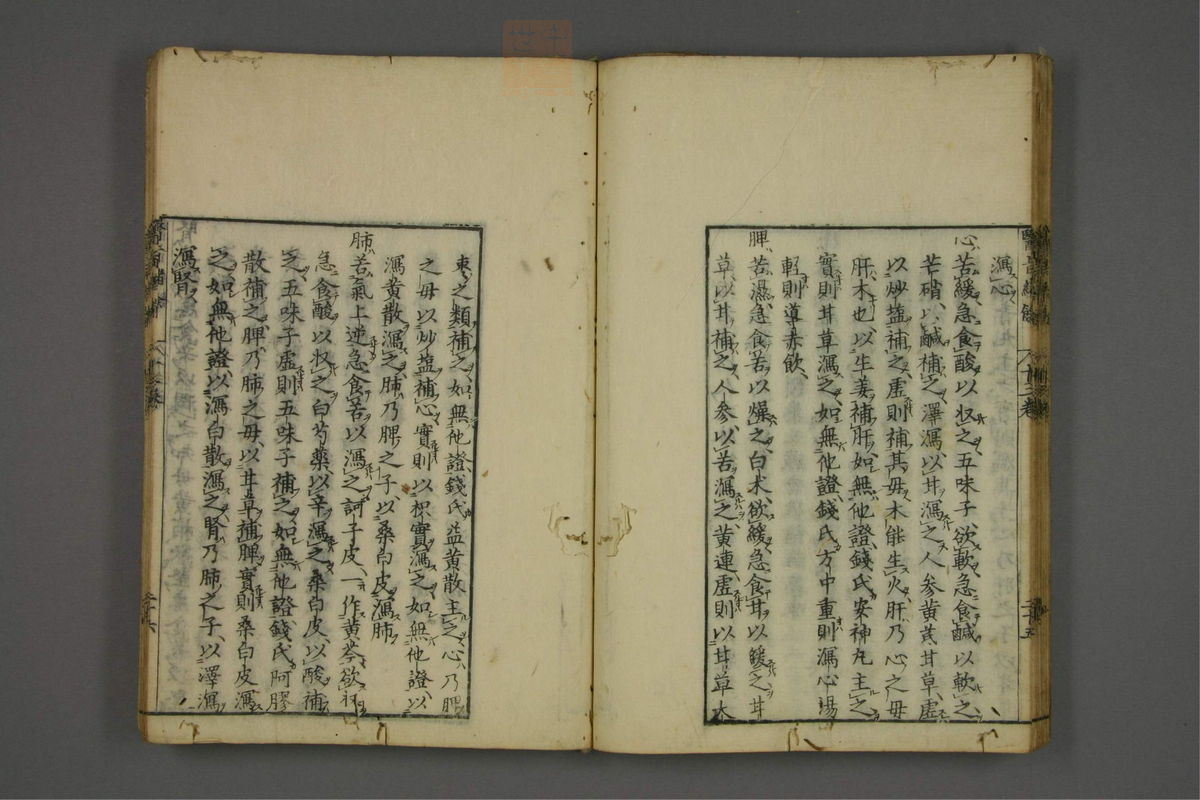 瀉心
心苦緩急食酸以收之五味子欲軟急食鹹以軟之
芒硝以鹹補之澤瀉以甘瀉之人參黃芪甘草虛
以炒塩補之虛則補其母木能生火肝乃心之母
肝木也以生姜補肝如無他證錢氏安神丸主之
實則甘草瀉之如無他證錢氏方中重則瀉心湯
輕則導赤飲
脾苦濕急食苦以燥之白朮欲緩急食甘以緩之甘
草以甘補之人參以苦瀉之黃連虛則以甘草大
棗之類補之如無他證錢氏益黃散主之心乃脾
之母以炒塩補心實則以枳實瀉之如無他證以
瀉黃散瀉之肺乃脾之子以桑白皮瀉肺
肺苦氣上逆急食苦以瀉之訶子皮一作黃芩欲收
急食酸以收之白芍藥以辛瀉之桑白皮以酸補
之五味子虛則五味子補之如無他證錢氏阿膠
散補之脾乃肺之母以甘草補脾實則桑白皮瀉
之如無他證以瀉白散瀉之腎乃肺之子以澤瀉
瀉腎